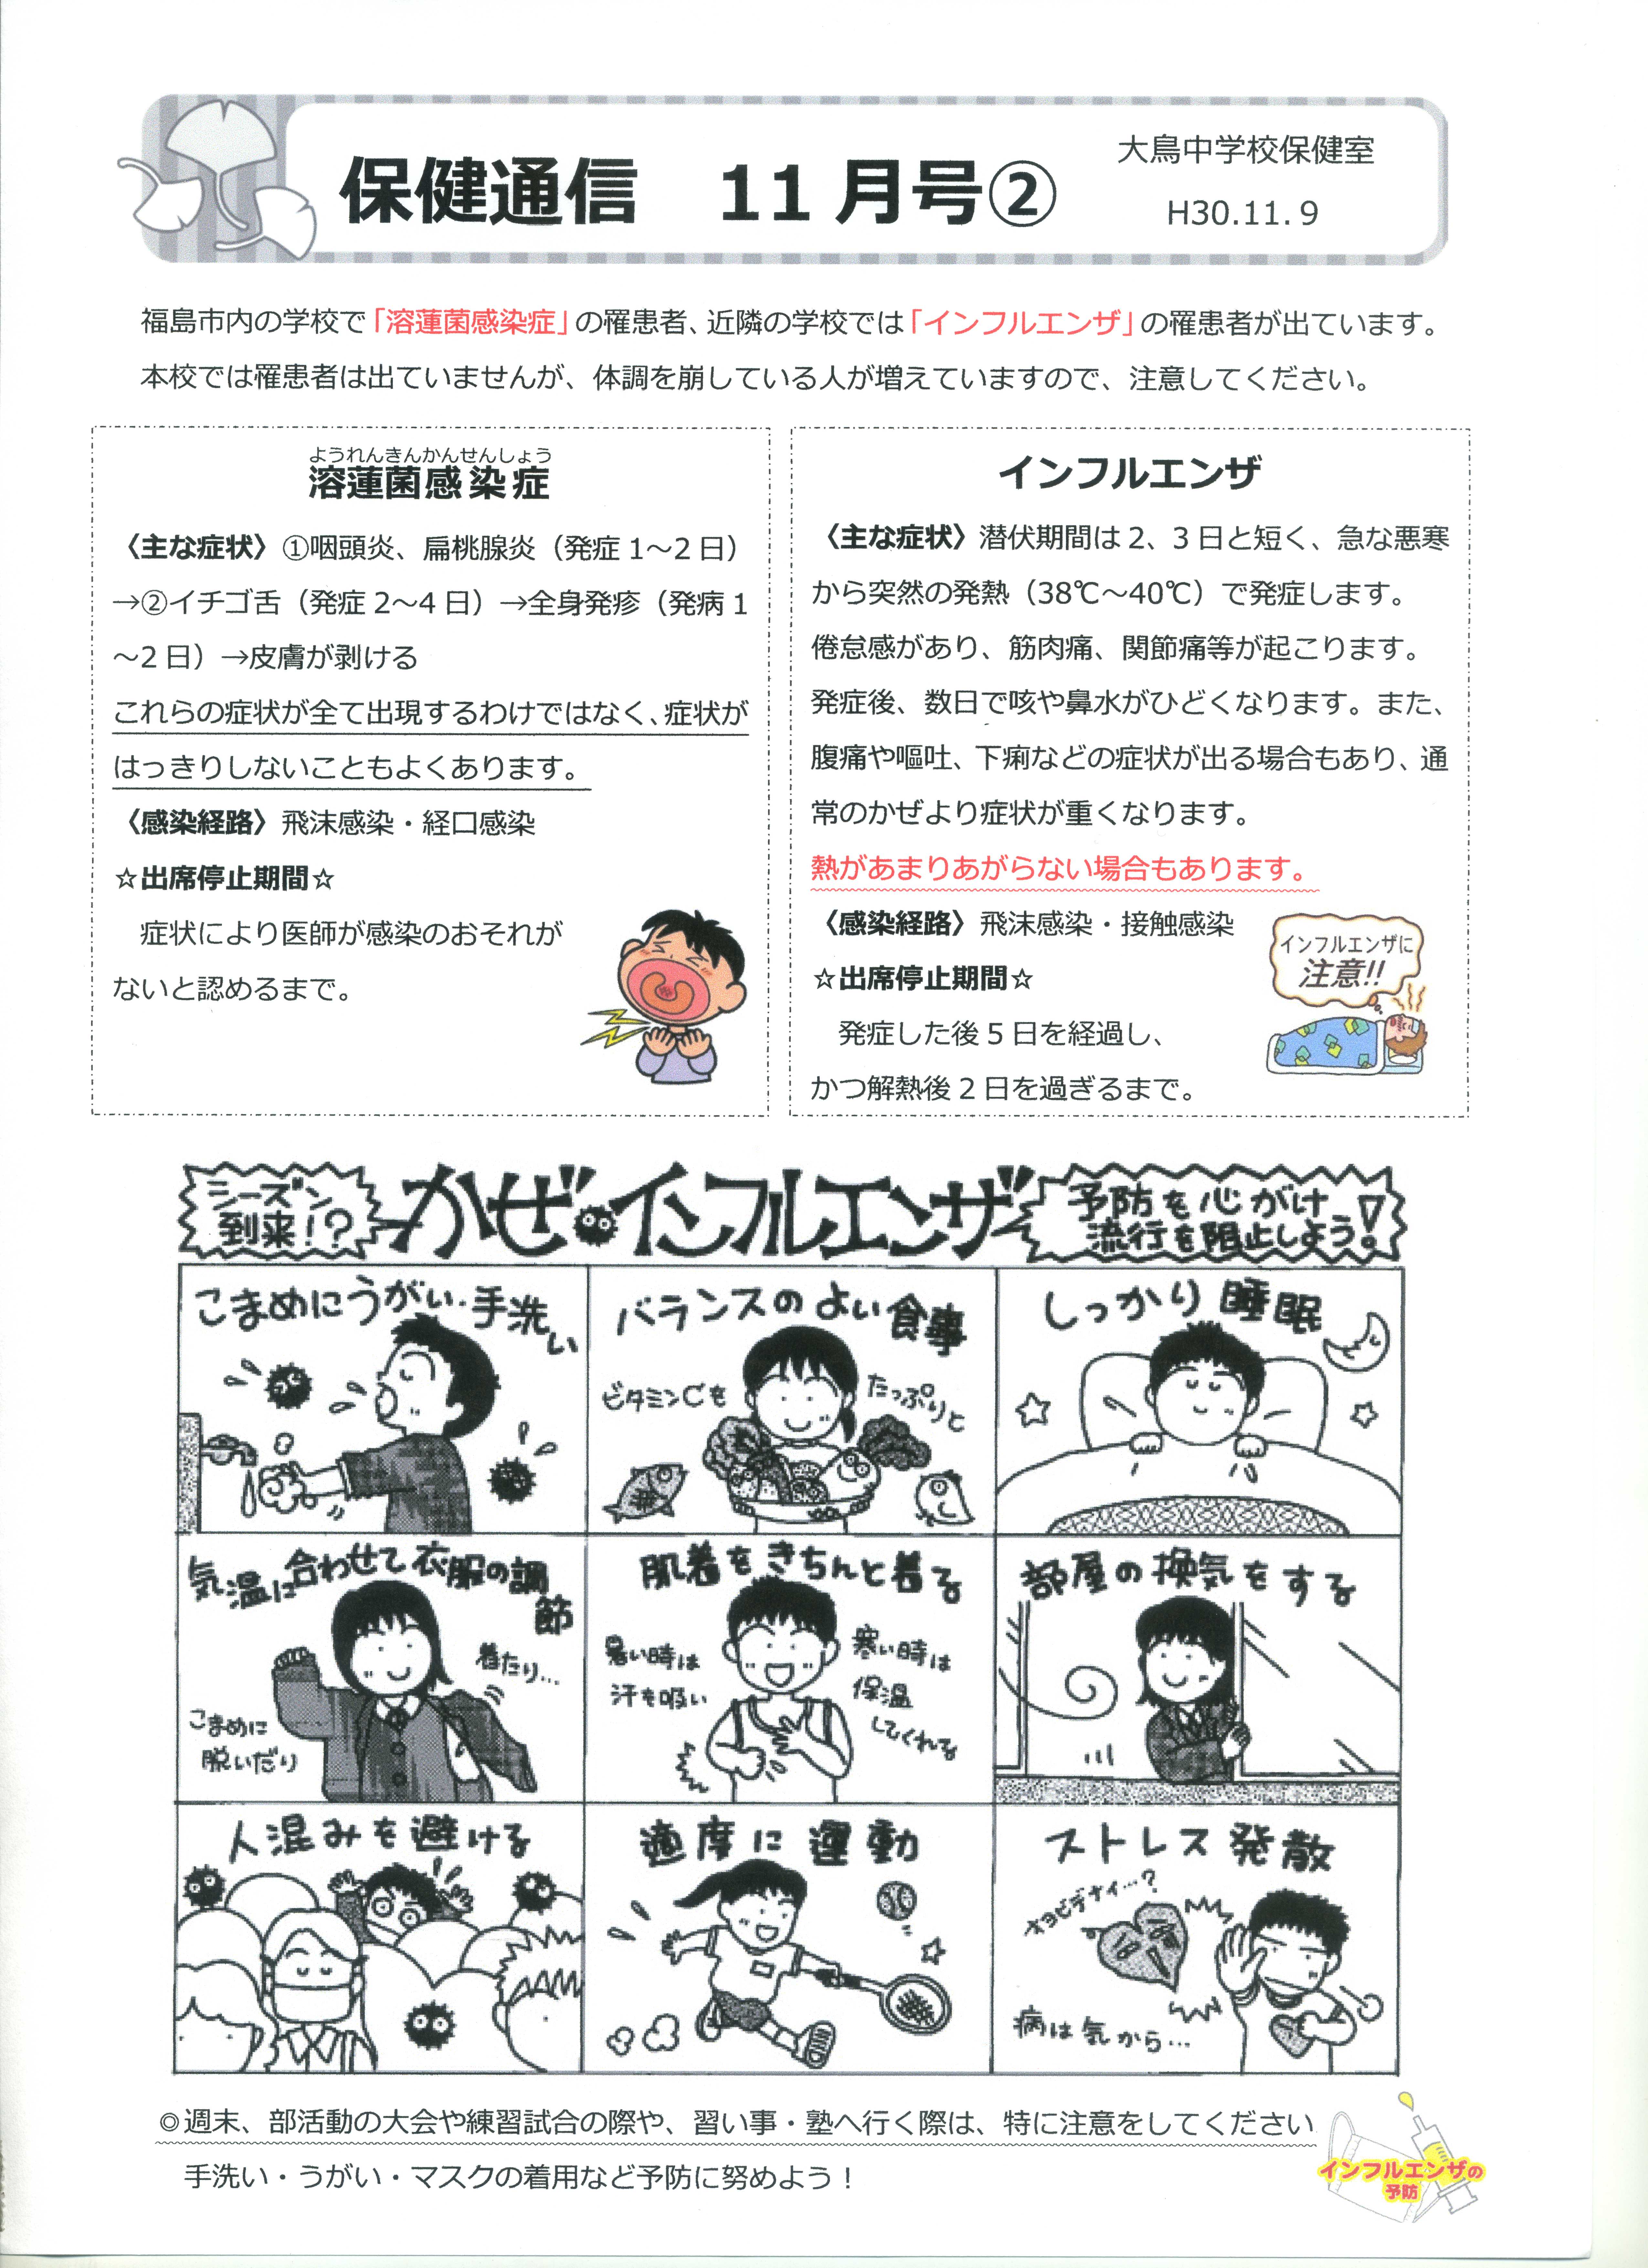 保健通信　11月号②
大鳥中学校保健室
H30.11.9
福島市内の学校で「溶蓮菌感染症」の罹患者、近隣の学校では「インフルエンザ」の罹患者が出ています。
本校では罹患者は出ていませんが、体調を崩している人が増えていますので、注意してください。
ようれんきんかんせんしょう
溶蓮菌感染症
〈主な症状〉①咽頭炎、扁桃腺炎（発症1～2日）
→②イチゴ舌（発症2～4日）→全身発疹（発病1
～2日）→皮膚が剥ける
これらの症状が全て出現するわけではなく、症状が
はっきりしないこともよくあります。
〈感染経路〉飛沫感染・経口感染
☆出席停止期間☆
症状により医師が感染のおそれが
ないと認めるまで。
インフルエンザ
〈主な症状〉潜伏期間は2、3日と短く、急な悪寒
から突然の発熱（38℃～40℃）で発症します。
倦怠感があり、筋肉痛、関節痛等が起こります。
発症後、数日で咳や鼻水がひどくなります。また、
腹痛や嘔吐、下痢などの症状が出る場合もあり、通
常のかぜより症状が重くなります。
熱があまりあがらない場合もあります。
〈感染経路〉飛沫感染・接触感染
☆出席停止期間☆
発症した後5日を経過し、
かつ解熱後2日を過ぎるまで。
インフルエンザに
注意!!
シーズン
到来!?
かぜ・インフルエンザ
予防を心がけ
流行を阻止しよう!
こまめにうがい・手洗い
バランスのよい食事
ビタミンCを
たっぷりと
しっかり睡眠
気温に合わせて衣服の調節
着たり…
こまめに
脱いだり
肌着をきちんと着る
暑い時は
汗を吸い
寒い時は
保温
してくれる
部屋の換気をする
人混みを避ける
適度に運動
ストレス発散
オヨビデナイ…?
病は気から…
◎週末、部活動の大会や練習試合の際や、習い事・塾へ行く際は、特に注意をしてください
手洗い・うがい・マスクの着用など予防に努めよう！
インフルエンザの
予防